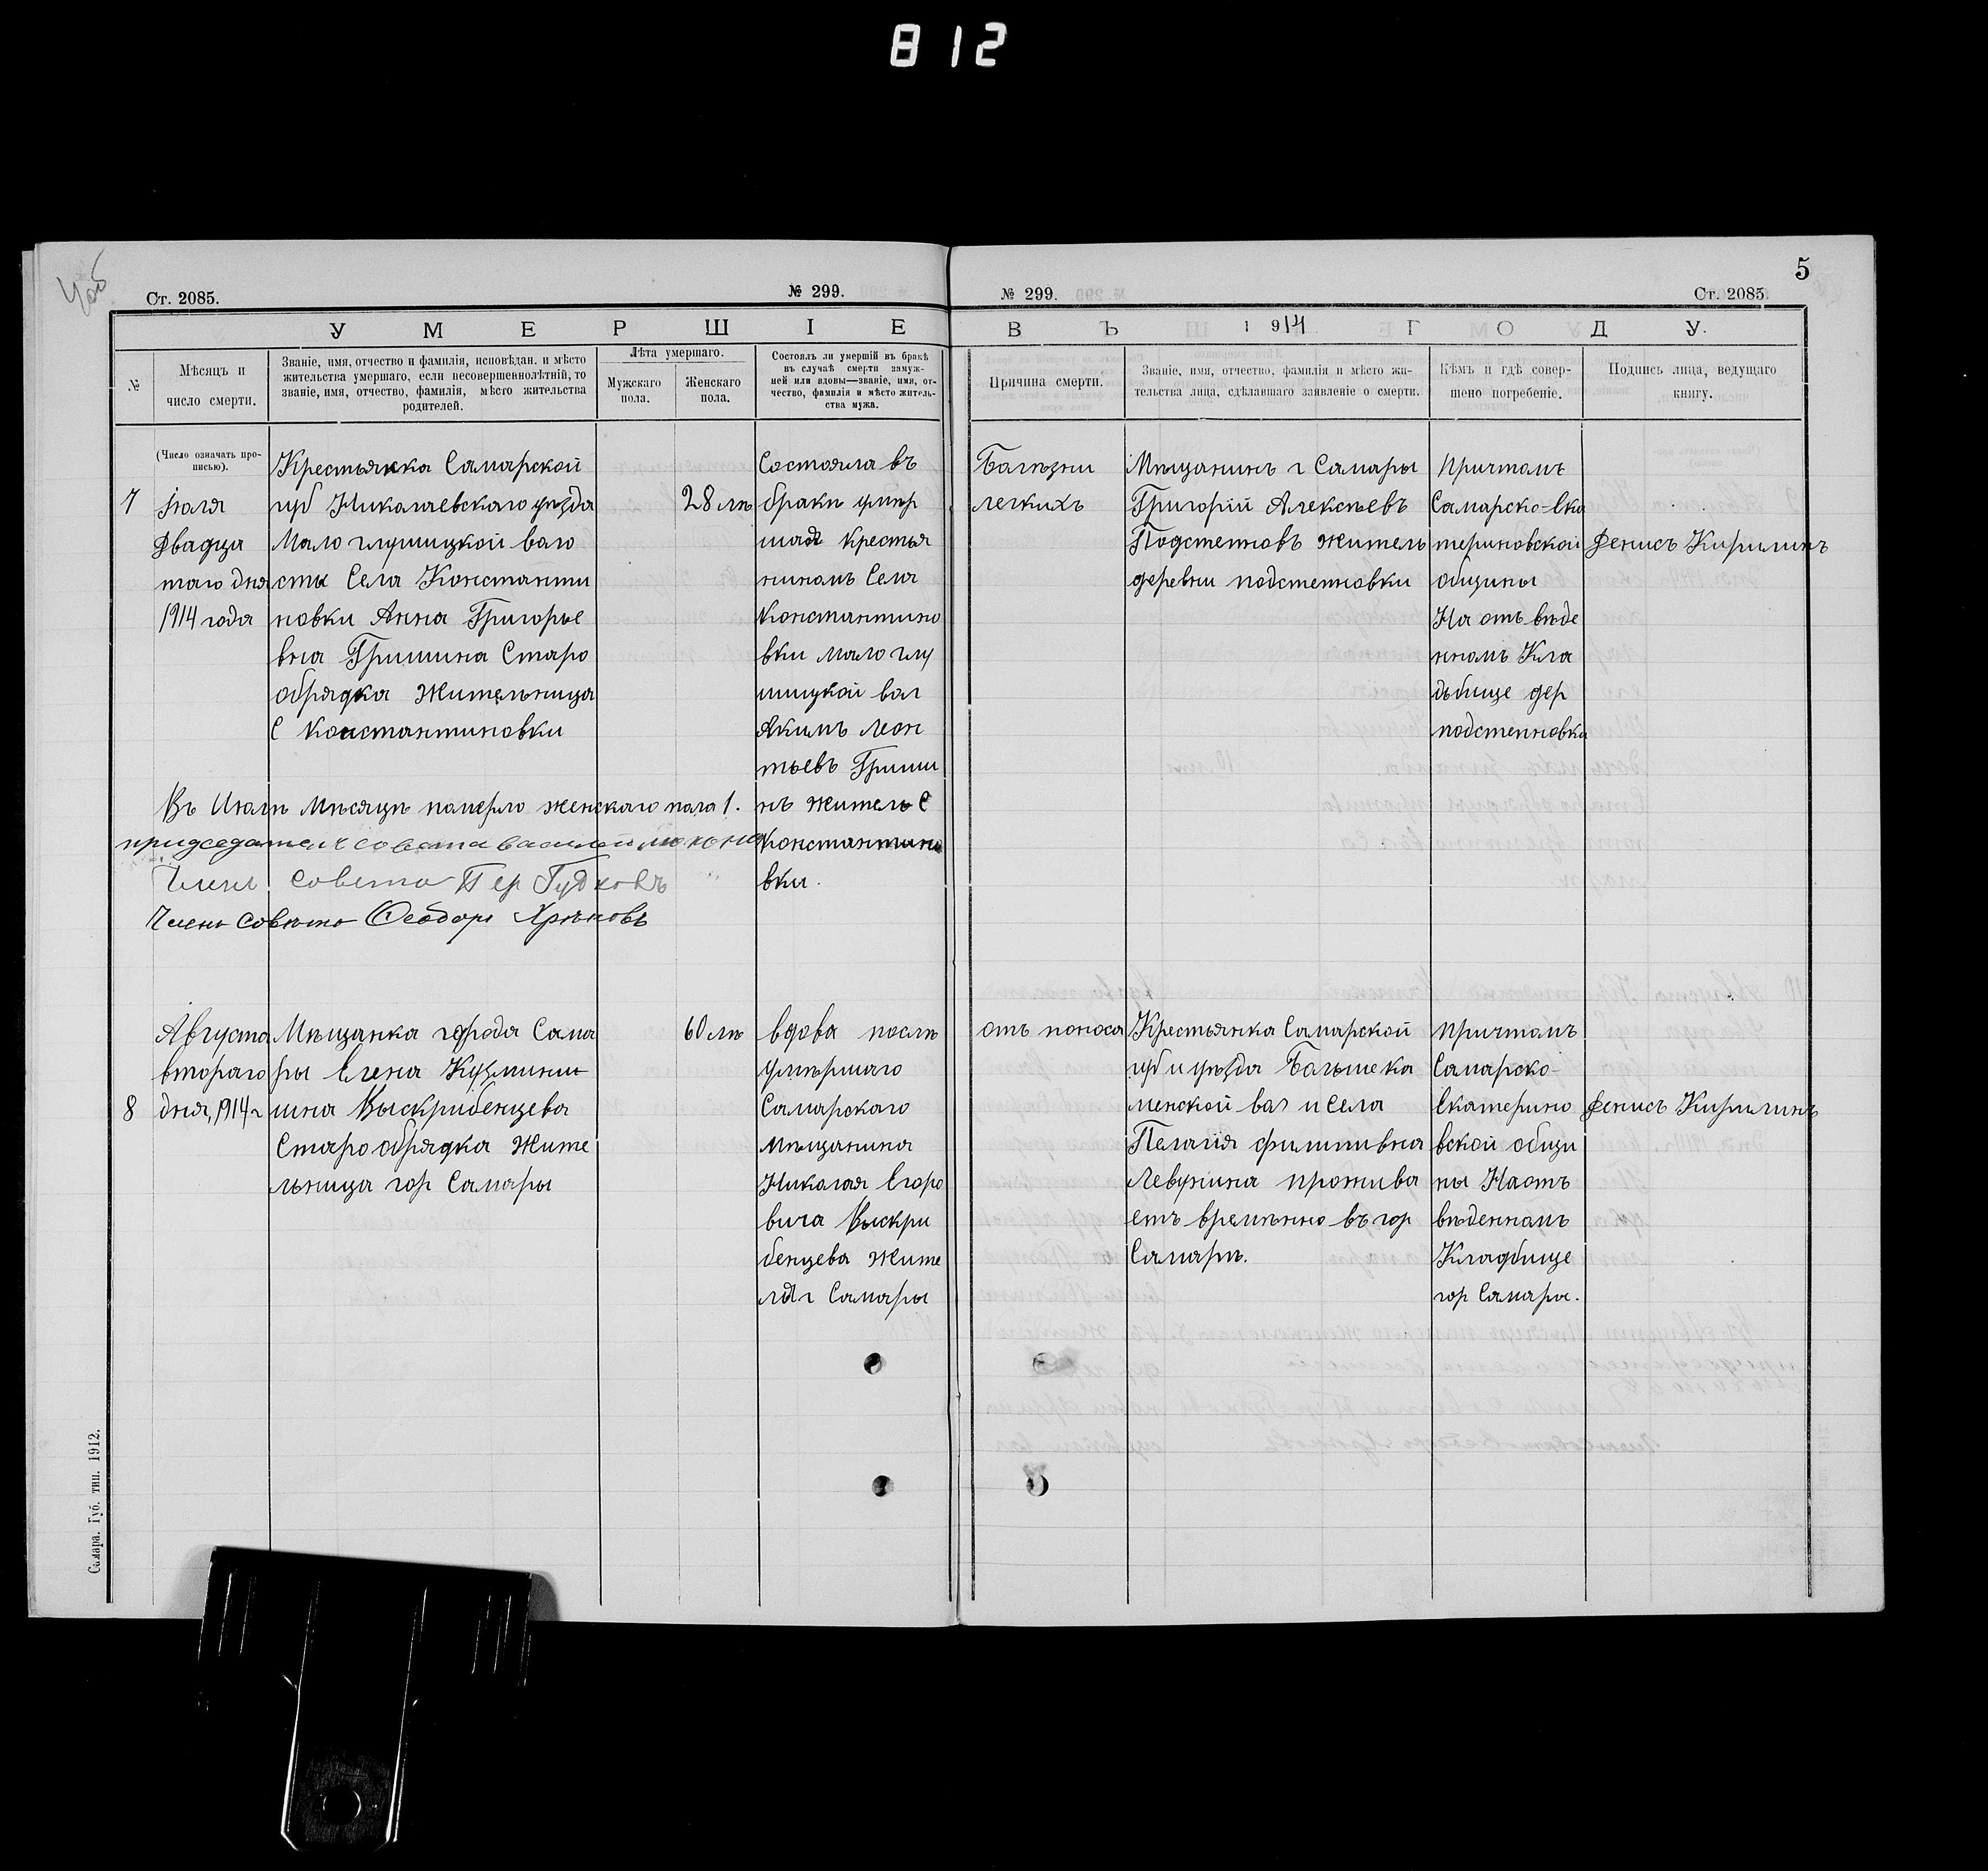 812
5
Ст. 2085.
№ 299.
№ 299.
Ст. 2085.
УМЕРШІЕ
ВЪ 1914 ГОДУ.
№
Мѣсяцъ и
число смерти.
Званіе, имя, отчество и фамилія, исповѣдан. и мѣсто
жительства умершаго, если несовершеннолѣтній, то
званіе, имя, отчество, фамилія, мѣсто жительства
родителей.
Лѣта умершаго.
Мужскаго
пола.
Женскаго
пола.
Состоялъ ли умершій въ бракѣ
въ случаѣ смерти замуж-
ней или вдовы—званіе, имя, от-
чество, фамилія и мѣсто житель-
ства мужа.
Причина смерти.
Званіе, имя, отчество, фамилія и мѣсто жи-
тельства лица, сдѣлавшаго заявленіе о смерти.
Кѣмъ и гдѣ совер-
шено погребеніе.
Подпись лица, ведущаго
книгу.
(Число означать про-
писью).
7
Іюля
Двадца
таго дня
1914 года
Крестьянка Самарской
губ Николаевскаго уѣзда
Мало глушицкой воло
сти Села Константи
новки Анна Григорье
вна Гришина Старо
обрядка жительница
С Константиновки
28 лѣ
Состояла въ
бракѣ умер
шая крестья
ниномъ Села
Константино
вки мало глу
шицкой вол
Акимъ Леон
тьевъ Гриши
нъ житель С
Константино
вки.
Болѣзни
легкихъ
Мѣщанинъ г Самары
Григорій Алексѣевъ
Подстепновъ житель
деревни подстепновки
Причтомъ
Самарско-Ека
териновской
общины
На отъ вѣде
нномъ Кла
дьбище дер
подстепновки
Денисъ Кирилинъ
Въ Июлѣ мѣсяцѣ померло женскаго пола 1.
придседатель совета василий
Членъ совета Пер Гудковъ
Членъ совѣта Феодоръ Хрѣновъ
8
Августа
втораго
дня, 1914 г
Мѣщанка города Сама
ры Елена Кузмини
шна Выскрибенцева
Старо обрядка жите
льница гор Самары
60 лѣ
вдова послѣ
умѣршаго
Самарскаго
мѣщанина
Николая Егоро
вича Выскри
бенцева жите
ля г Самары
отъ поноса
Крестьянка Самарской
губ и уѣзда Бальшека
менской вол и села
Пелагія филипивна
Левушина прожива
етъ времѣнно въ гор
Самарѣ.
причтомъ
Самарско-
Екатерино
вской общи
ны На отъ
вѣденномъ
Кладбище
гор Самары.
Денисъ Кирилинъ
Самара. Губ. тип. 1912.